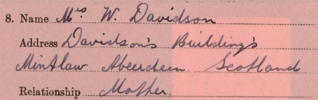 8. Name Mrs W. Davidson
Address Davidson's Buildings
Mintlaw Aberdeen Scotland
Relationship Mother